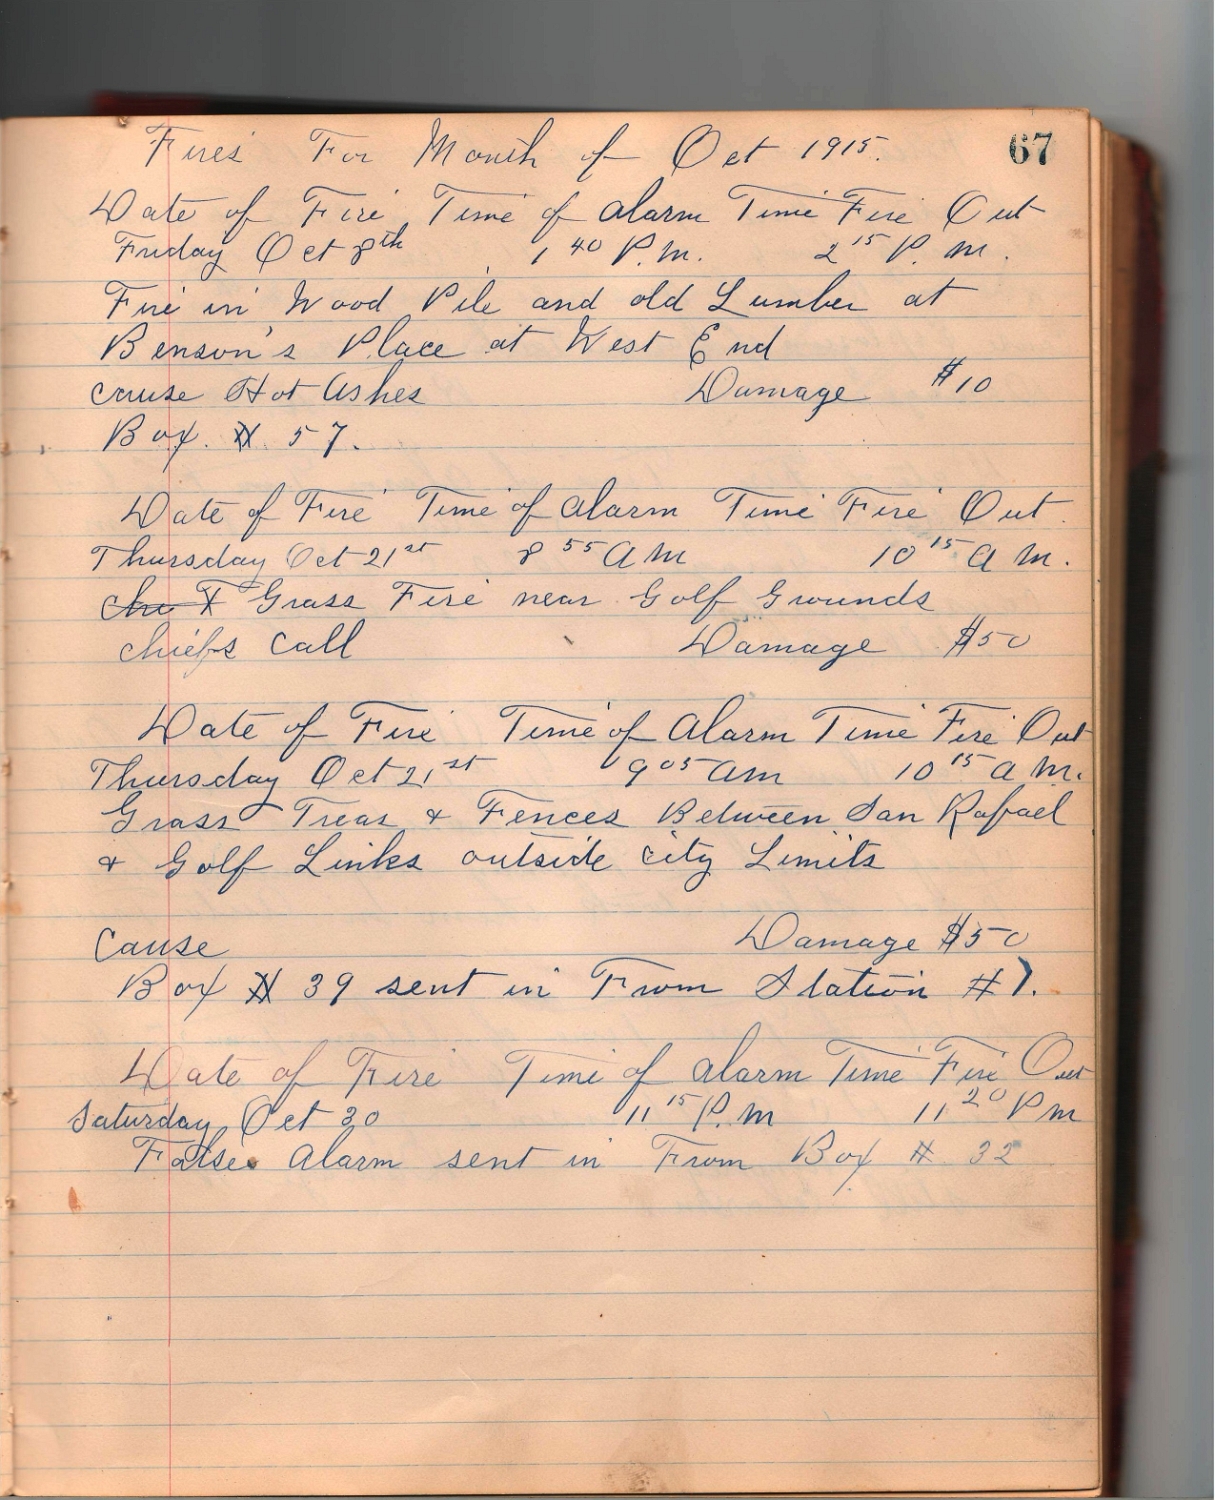 Fires For Month of Oct 1915. 67
Date of Fire Time of alarm Time Fire Out
Friday Oct 8th 1 40 P.M. 2 15 P.M.
Fire in Wood Pile and old Lumber at
Benson's Place at West End
Cause Hot Ashes Damage $10
Box. # 57.
Date of Fire Time of alarm Time Fire Out.
Thursday Oct 21st 8 55 AM 10 15 AM.
Grass Fire near Golf Grounds
Chiefs Call Damage $50
Date of Fire Time of Alarm Time Fire Out
Thursday Oct 21st 9 05 am 10 15 a M.
Grass Treas & Fences Between San Rafael
& Golf Links outside City Limits
Cause Damage $50
Box # 39 sent in From Station #1.
Date of Fire Time of alarm Time Fire Out
Saturday Oct 30 11 15 P.M 11 20 PM
False Alarm sent in From Box # 32